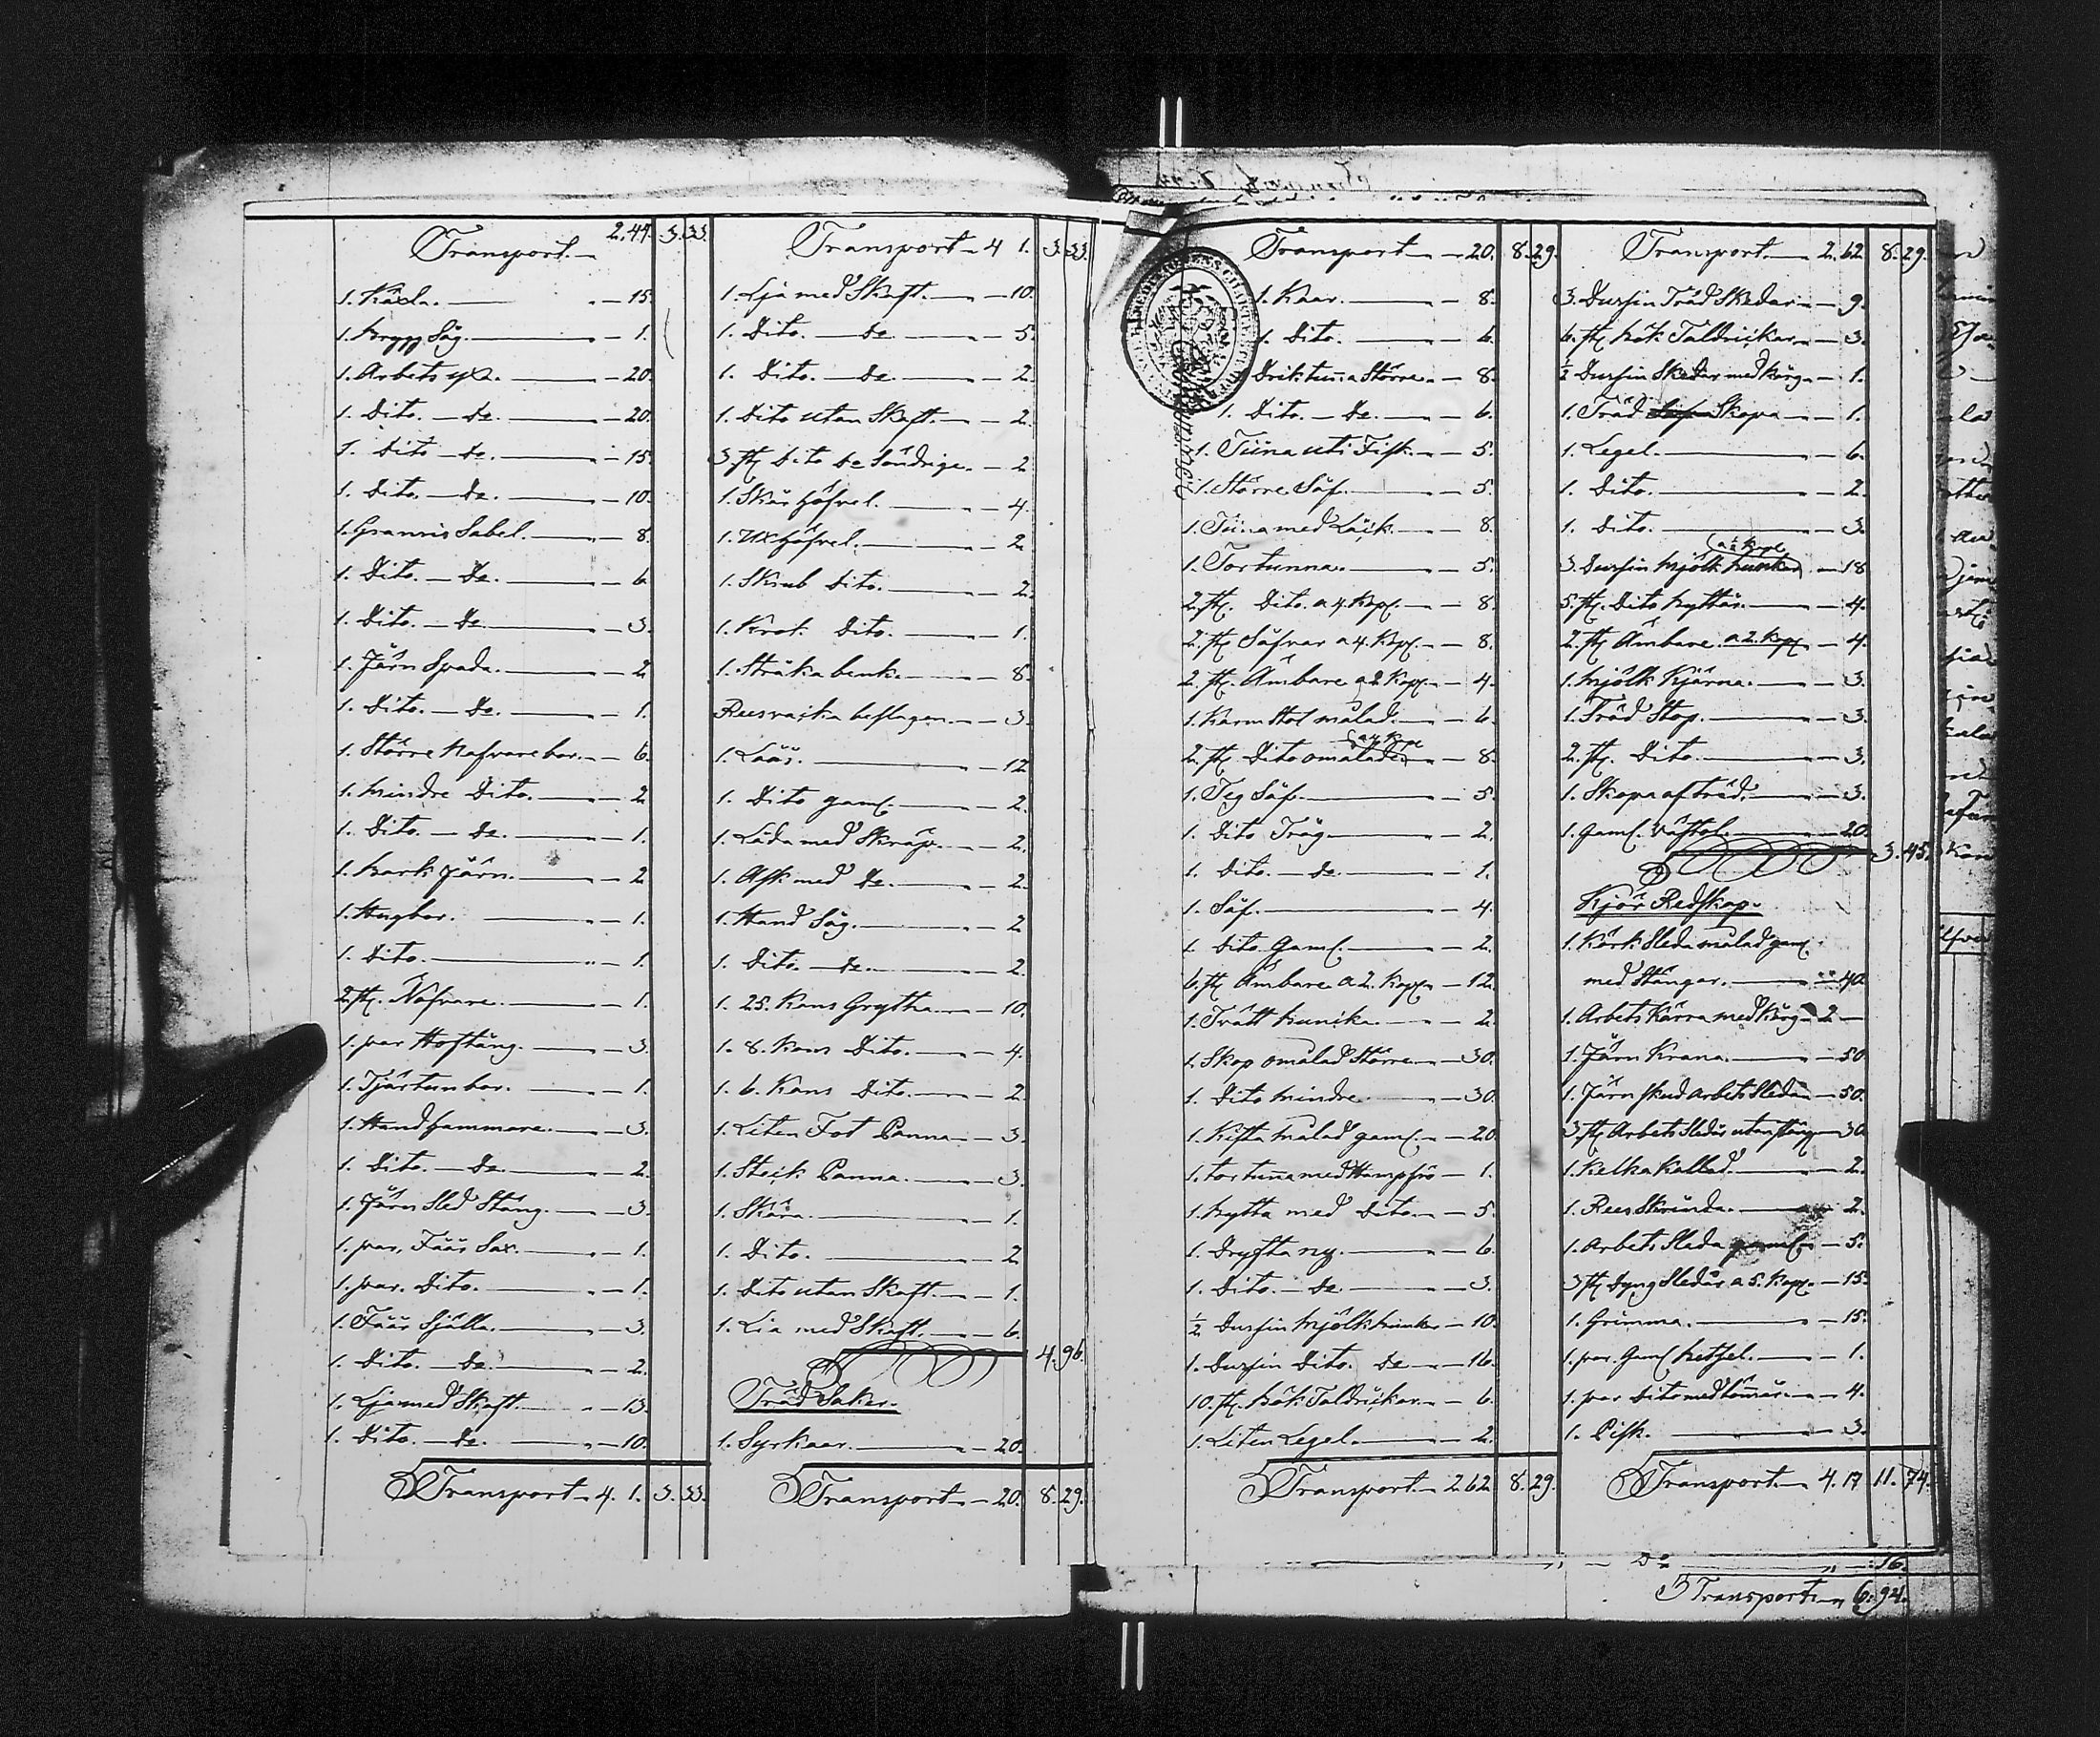 Transport. 2.47. 3.33.
1. Käxla. 15.
1. Krypp Såg. 1.
1. Arbets yxa. 20.
1. Dito. de. 20.
1. Dito de. 15.
1. Dito. de. 10.
1. Granris Sabel. 8.
1. Dito. de. 6.
1. Dito. de. 3.
1. Järn Spada. 2
1. Dito. de. 1.
1. Större Nafvare bor. 6.
1. Mindre Dito. 2
1. Dito. de. 1.
1. Mark Järn. 2
1. Hugbor. 1.
1. Dito. 1.
2 st. Nafvare. 1.
1. par Hoftång. 3.
1. Tjärtun bor. 1.
1. Hand hammare. 3.
1. Dito. de. 2.
1. Järn Sled Stång. 3.
1. par. Fåår Sax. 1.
1. par. Dito. 1.
1. Fåår Själla. 3.
1. Dito. de. 2.
1. Lja med Skaft. 13.
1. Dito. de. 10.
Transport 4. 1. 3.33.
Transport 4 1. 3.33.
1. Lja med Skaft. 10.
1. Dito. de 5.
1. Dito. de. 2.
1. Dito utan Skaft. 2.
3 st Dito de Söndrige. 2
1. Skär höfvel. 4
1. höfvel. 2.
1. Skrub Dito. 2.
1. Krok Dito. 1.
1. Stråka benk. 8.
3.
1. Låås. 12
1. Dito gaml. 2.
1. Låda med Skråp. 2.
1. Ask med de. 2.
1. Hand Såg. 2
1. Dito. de. 2.
1. 25. Kans Grytha. 10.
1. 8. Kans Dito. 4.
1. 6. Kans Dito. 2
1. Liten Fot Panna. 3.
1. Steik Panna. 3.
1. Skära. 1.
1. Dito. 2
1. Dito utan Skaft. 1.
1. Lia med Skaft. 6.
4.96.
Träd Saker.
1. Syrkaar. 20.
Transport 20. 8.29.
Transport 20. 8.29.
1. Kaar. 8.
1. Dito. 6.
Driktunna Större. 8.
1. Dito. de. 6.
1. Tiina uti Fisk. 5.
1. Större Såf. 5.
1. Tiina med Låck. 8.
1. Tortunna. 5.
2. st. Dito. a 4. Kop. 8.
2. st Såfvar a 4. Kop. 8.
2. st. Ämbare a 2 Kop. 4.
1. Karm Stol målad. 6.
2. st. Dito omålade a 4 Kop 8.
1. Teg Såf. 5.
1. Dito Tråg. 2.
1. Dito. de. 1.
1. Såf. 4.
1. Dito Gaml. 2.
6. st Ämbare a 2. Kop 12.
1. Trätt hunika. 2.
1. Skop omålad Större. 30.
1. Dito Mindre. 30.
1. Kista målad gaml. 20.
1. tortunna med Hampfrö 1.
1. Mytta med Dito. 5.
1. Dryfta ny. 6.
1. Dito. de. 3.
1/2. Dussin Mjölk bunkar 10.
1. Dussin Dito. de 16.
10. st. Taldrickar. 6.
1. Liten Legel. 2.
Transport. 2.62. 8.29.
Transport. 2.62. 8.29.
3. Dussin Träd Skedar 9.
6. st Taldrickar. 3.
1/2 Dussin Skedar med korg. 1.
1. Träd Skopa 1.
1. Legel. 6.
1. Dito. 2.
1. Dito. 3.
3. Dussin Mjölk bunkar 18
5. st. Dito byttor. 4.
2. st Ämbare. a 2. Kop 4.
1. Mjölk Kjärna. 3.
1. Träd Stop. 3.
2. st. Dito. 3.
1. Skopa af träd. 3.
1. gaml. Väfstol. 20.
3.45.
Kjör Redskap.
1. Körk Sleda målad gaml.
med Stånger. 40.
1. Arbets Kärra med Korg 2
1. Järn Krana. 50.
1. Järn skod arbets Slede 50.
3. st Arbets Slädar utan stång 30.
1. Kelka kallad. 2.
1. Rees Skrinda. 2.
1. Arbets Sleda gaml. 5.
3 st Dyng Slädar a 5. Kop. 15.
1. Grimma. 15.
1. par. Gaml betsel. 1.
1. par Dito med tömmar. 4.
1. Pisk. 3.
Transport. 4.17 11.74.
Do 16.
Transport. 6.94.